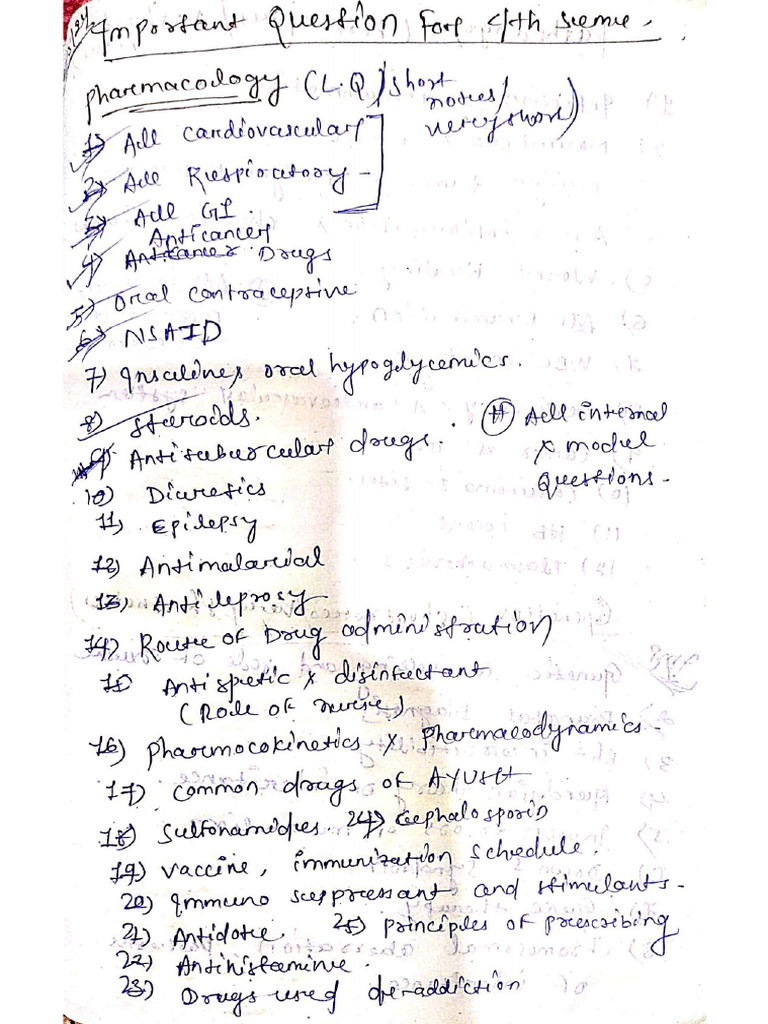 Important Question For 4th seme.
Pharmacology (L.Q / short notes / very short)
1) All cardiovascular
2) All Respiratory -
3) All GI.
Anticancer
4) Anticancer Drugs
5) Oral contraceptive
6) NSAID
7) Insulines oral hypoglycemics.
8) Steroids.
9) Antitubercular drugs.
# All internal x model Questions -
10) Diuretics
11) Epilepsy
12) Antimalarial
13) Antileprosy
14) Route of Drug administration
15) Antispetic x disinfectant
(Role of nurse)
16) Pharmocokinetics x Pharmacodynamics -
17) Common drugs of AYUSH
18) Sulfonamides 24) Cephalosporin
19) Vaccine, immunization schedule.
20) Immuno suppressant and stimulants -
21) Antidote 25) principles of prescribing
22) Antihistamine.
23) Drugs used de-addiction